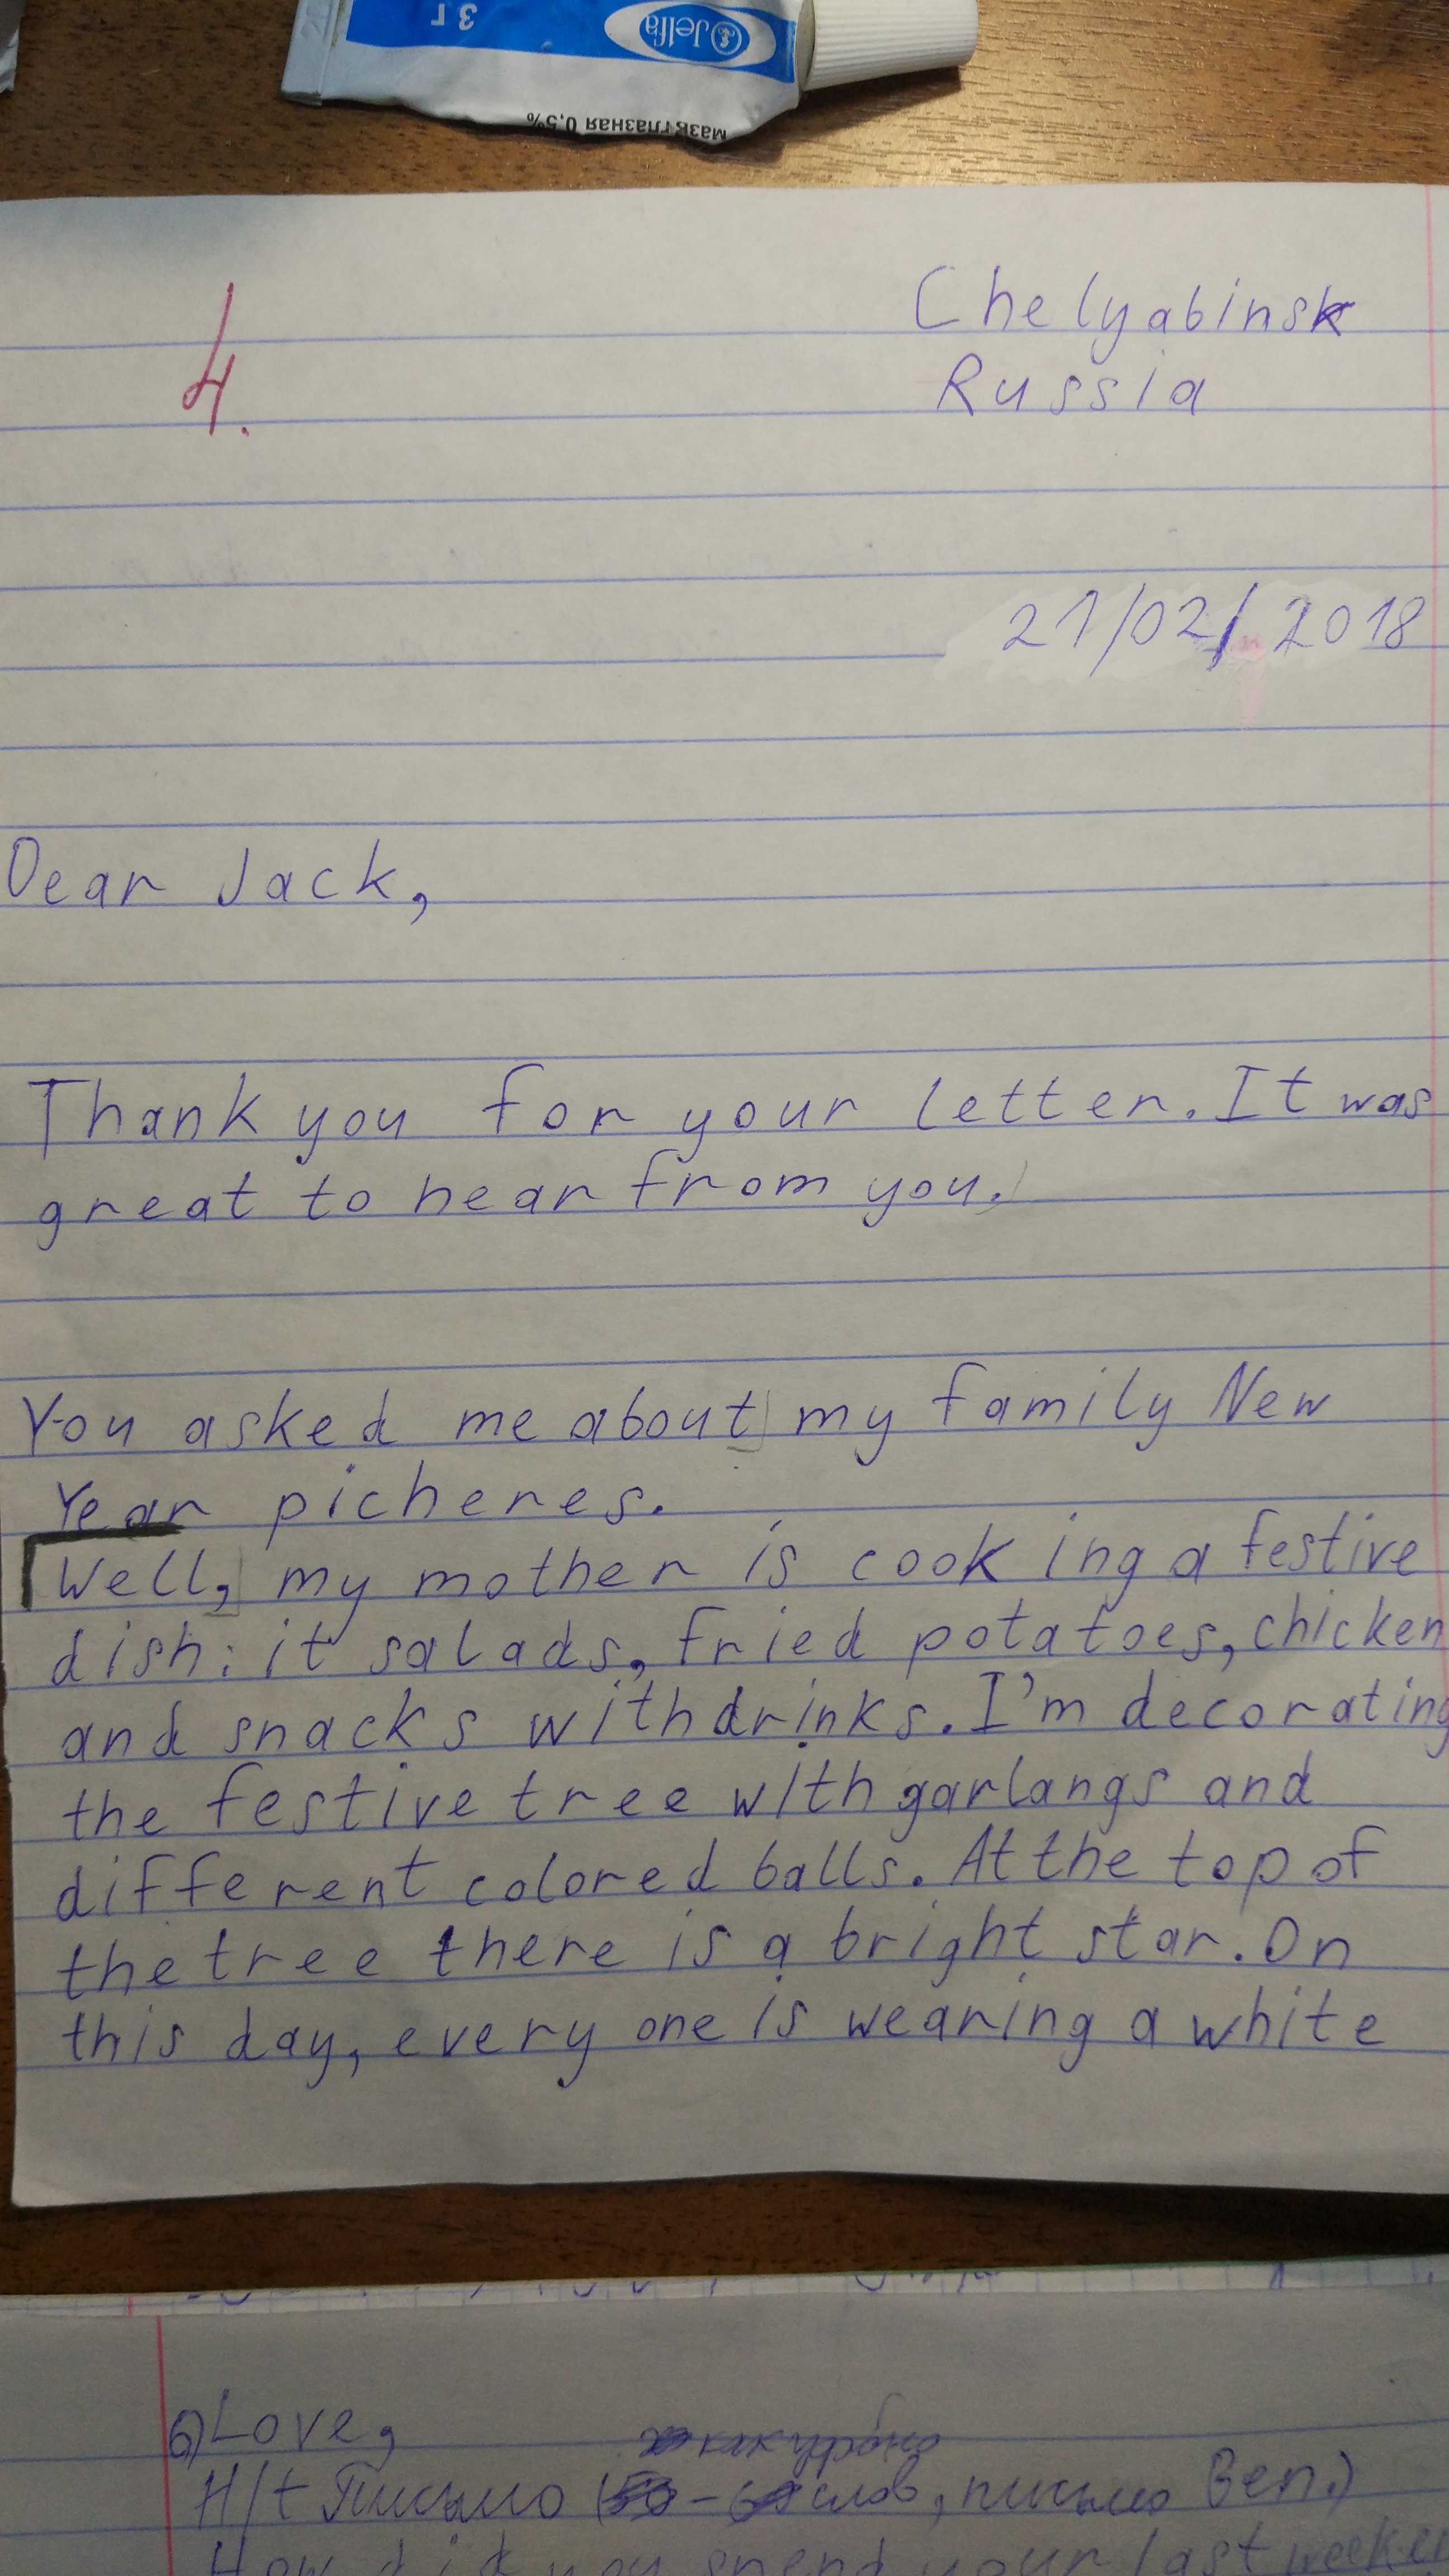 3 г
Jelfa
мазь глазная 0,5%
4.
Chelyabinsk
Russia
21/02/2018
Dear Jack,
Thank you for your letter. It was
great to hear from you.
You asked me about my family New
Year picheres.
Well, my mother is cooking a festive
dish: it salads, fried potatoes, chicken
and snacks with drinks. I'm decorating
the festive tree with garlangs and
different colored balls. At the top of
the tree there is a bright star. On
this day, every one is wearing a white
6) Love,
как угодно
H/t Письмо (50-60 слов, письмо Ben.)
How did you spend your last weeken